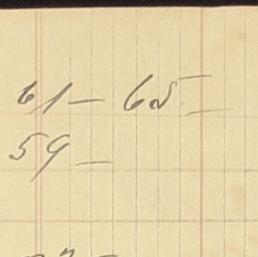 61 — 65 —
59 —